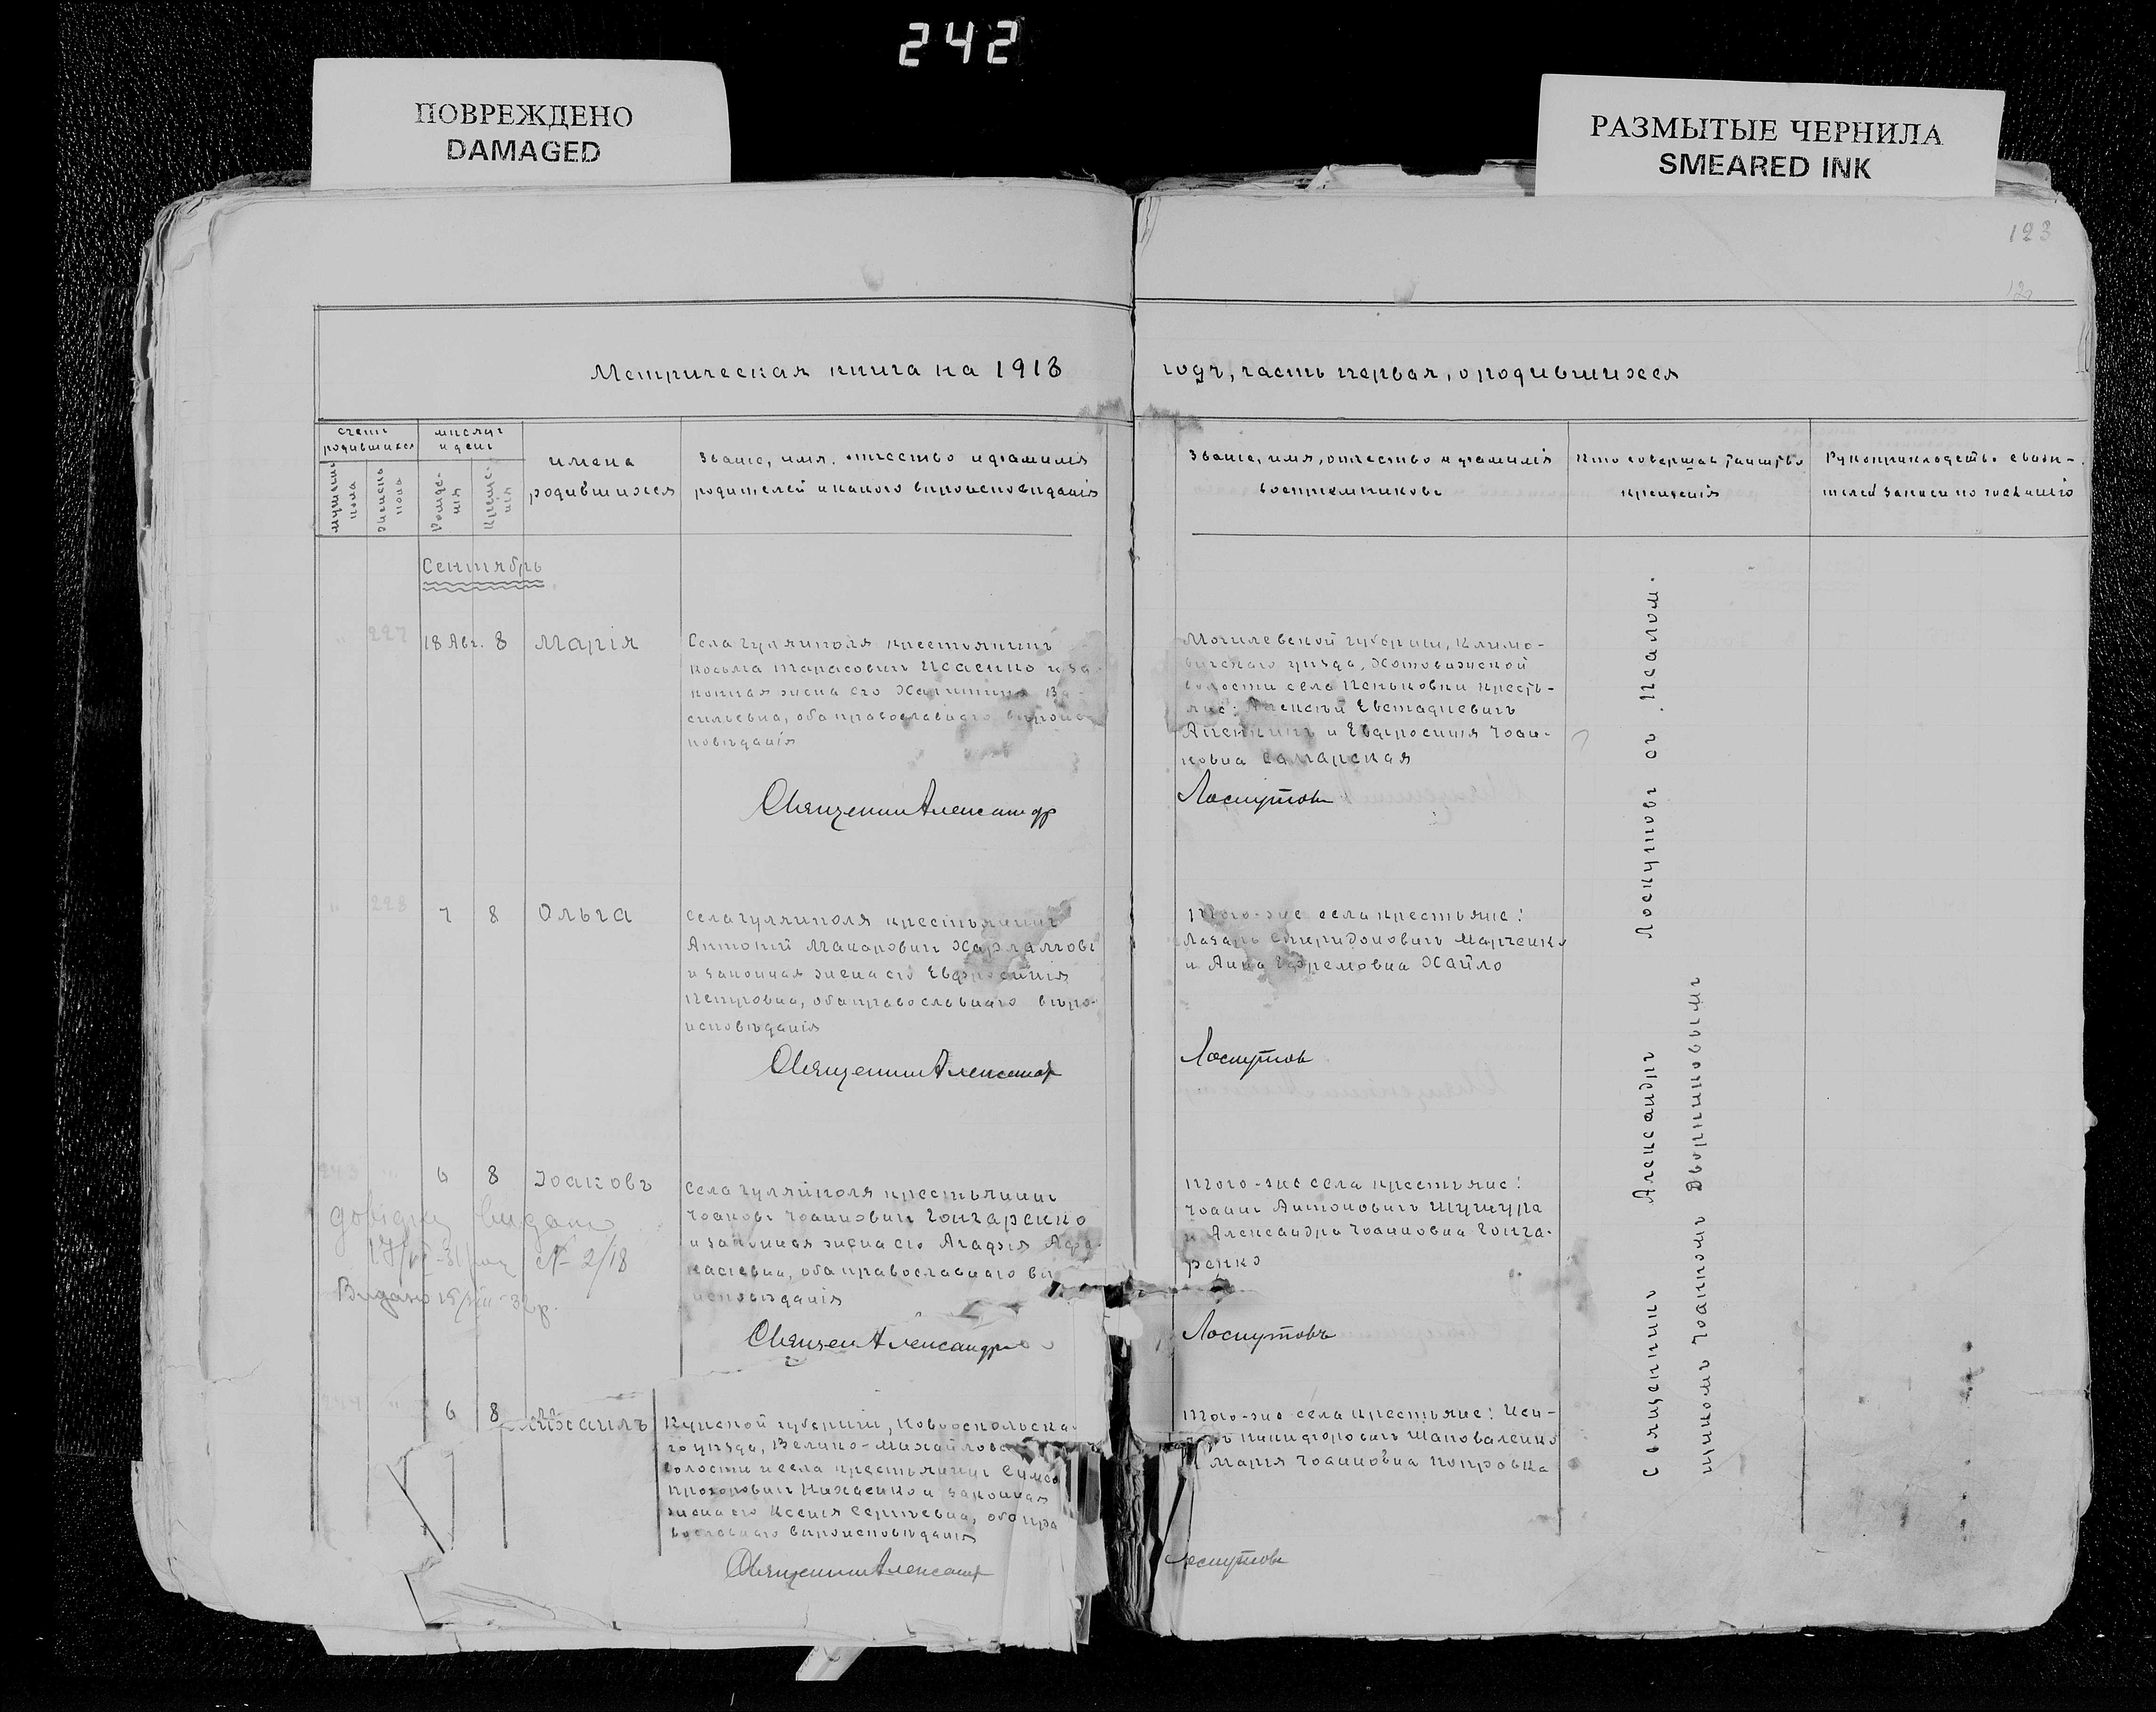 242
ПОВРЕЖДЕНО
DAMAGED
РАЗМЫТЫЕ ЧЕРНИЛА
SMEARED INK
123
Метрическая книга на 1913
годъ, часть первая, о родившихся
счетъ
родившихся
мужеска
пола
женска
пола
мѣсяцъ
и день
Рожде-
нія
Креще-
нія
имена
родившихся
Званіе, имя, отчество и фамилія
родителей и какого вѣроисповѣданія
Званіе, имя, отчество и фамилія
воспріемниковъ
Кто совершалъ таинство
крещенія
Рукоприкладство свидѣ-
телей записи по желанію
Сентябрь
227 18 Авг. 8 Марія
Села Гуляйполя крестьянинъ
Косьма Тарасовичъ Исаенко и за-
конная жена его Харитина Ва-
сильевна, оба православнаго вѣроис-
повѣданія
Священникъ Александр
Могилевской губерніи, Климо-
вичскаго уѣзда, Хотовижской
волости села Пеньковки кресть-
яне: Алексѣй Евстафіевичъ
и Евфросинія Іоан-
новна Самарская
Лоскутовъ
228 7 8 Ольга
Села Гуляйполя крестьянинъ
Антоній Макаровичъ Харламовъ
и законная жена его Евфросинія
Петровна, оба православнаго вѣро-
исповѣданія
Священникъ Александр
Того-же села крестьяне:
Лазарь Спиридоновичъ Марченко
и Анна Ефремовна Хайло
Лоскутов
243 6 8 Іоаковъ
Села Гуляйполя крестьянинъ
Іоаковъ Іоанновичъ Гончаренко
и законная жена его Агафія Афа-
насіевна, оба православнаго вѣ
исповѣданія
Священ Александръ
довідку видано
№ 2/18
Видано
Того-же села крестьяне:
Іоаннъ Антоновичъ Шушура
и Александра Іоанновна Гонча-
ренко
Лоскутовъ
244 6 8 Михаилъ
Курской губерніи, Новооскольска-
го уѣзда, Велико-Михайловс
волости и села крестьянинъ
и законная
жена его Ксенія Сергѣевна, оба пра
вославнаго вѣроисповѣданія
Священникъ Александр
Того-же села крестьяне:
Никифоровичъ Шаповаленко
Марія Іоанновна
Лоскутовъ
Священникъ Александръ Лоскутовъ съ Псалом-
щикомъ Іоанномъ Дворниковымъ